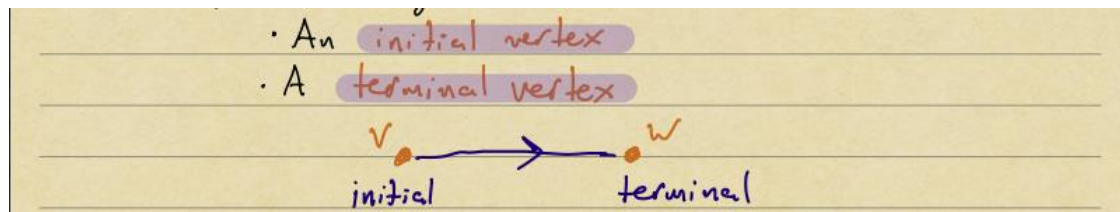 · An initial vertex
· A terminal vertex
V W
initial terminal